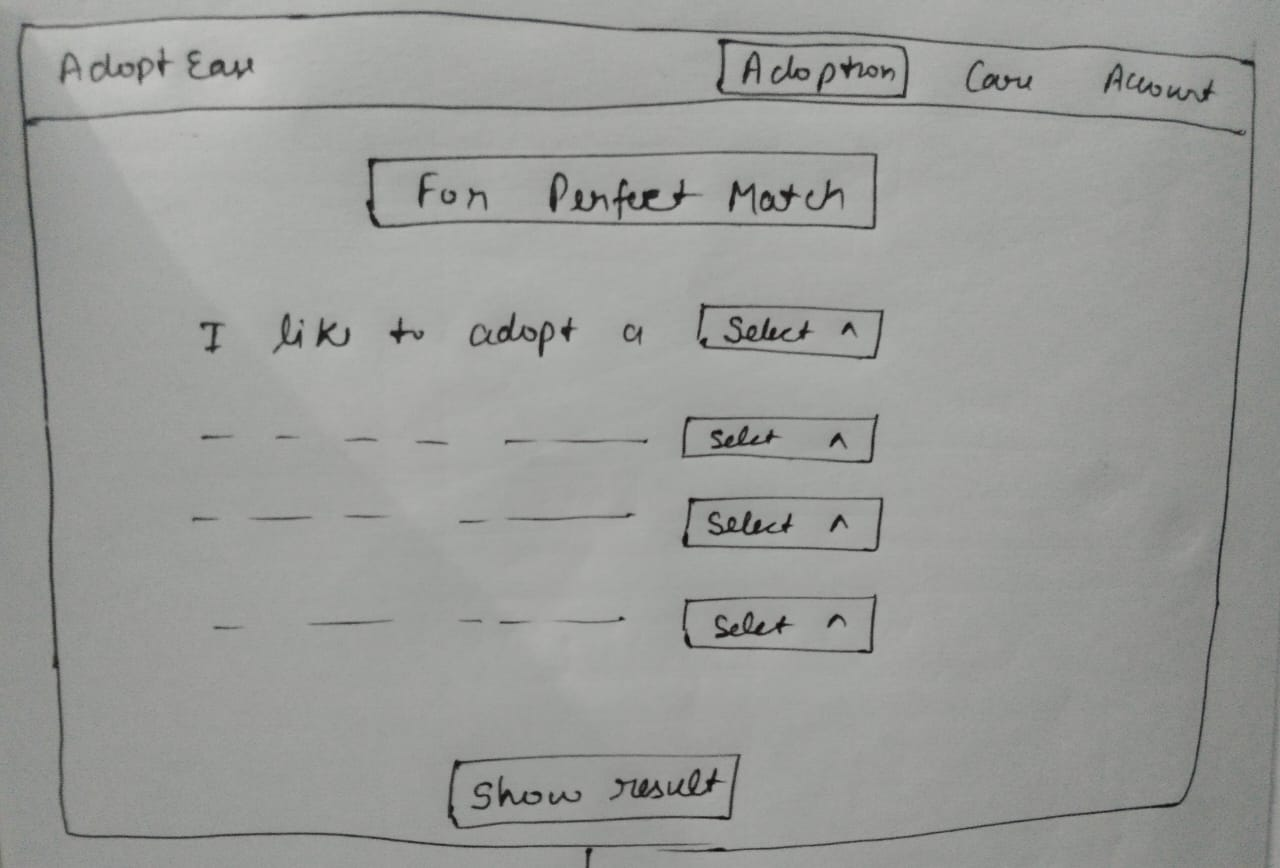 Adopt Ease Adoption Care Account
For Perfect Match
I like to adopt a Select ^
Select ^
Select ^
Select ^
Show result